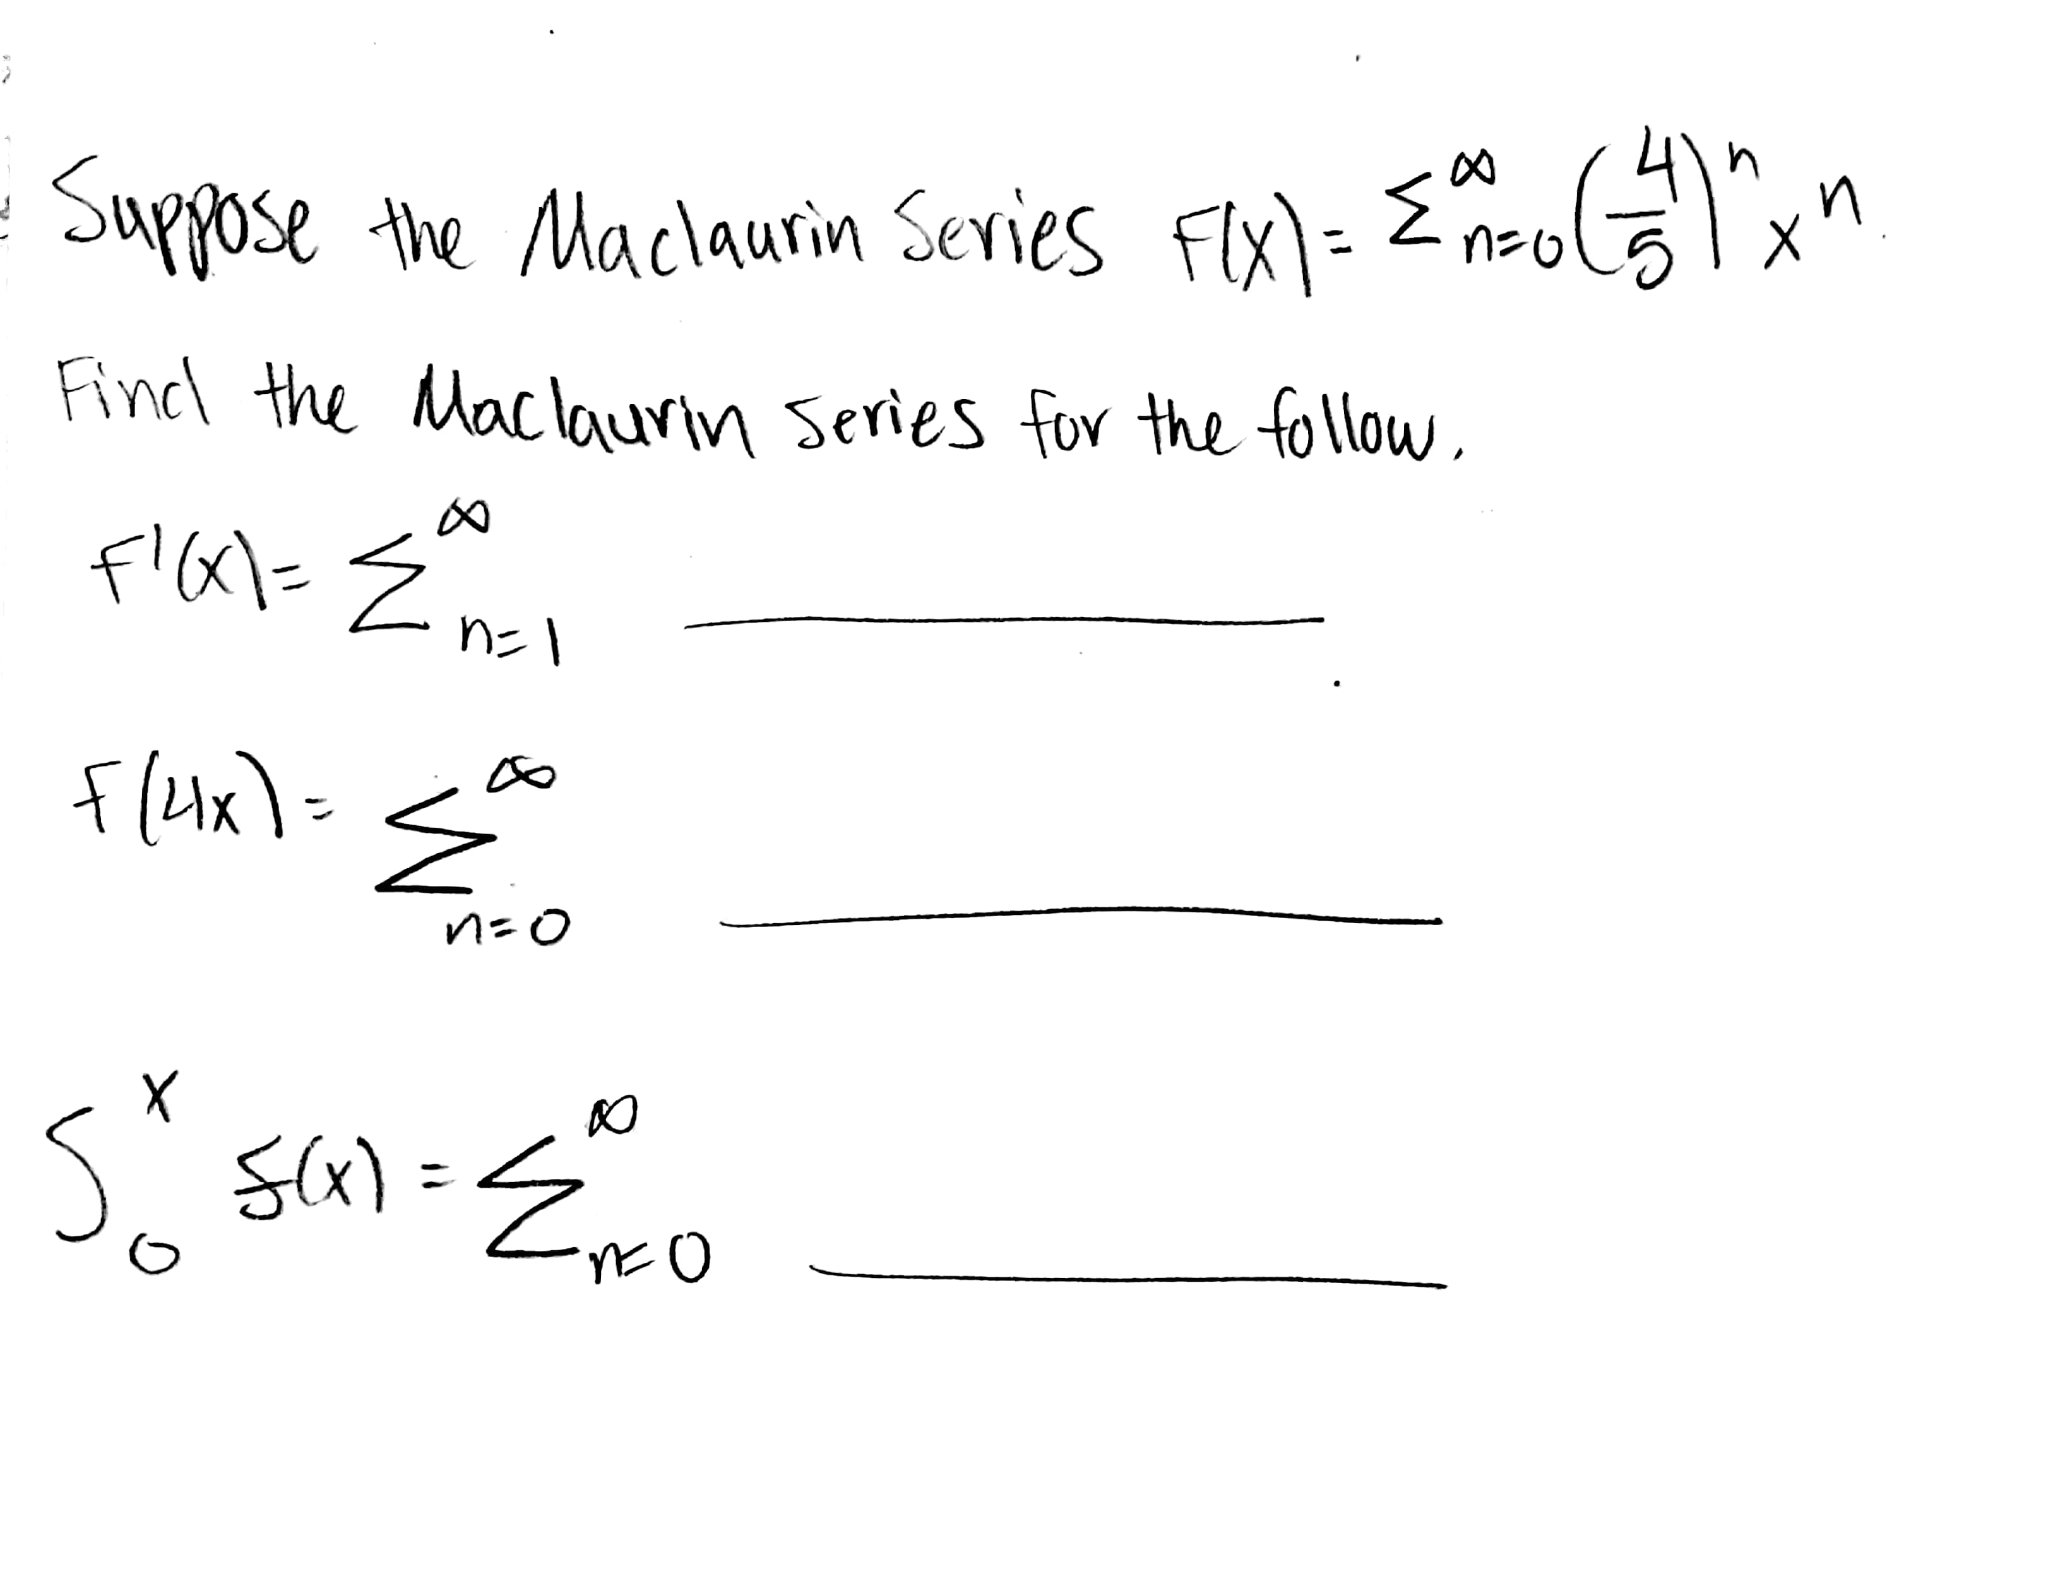 Suppose the Maclaurin Series F(x)= Σ^∞ n=0 (4/5)^n x^n.
Find the Maclaurin series for the follow.
F'(x)= Σ^∞ n=1 ________
f(4x)= Σ^∞ n=0 ________
∫^x_0 f(x) = Σ^∞ n=0 ________